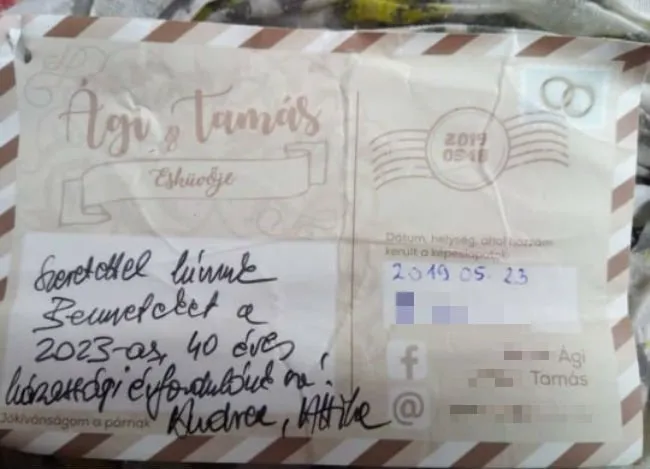 Ági & Tamás
Esküvője
Szeretettel hívunk
Benneteket a
2023-as, 40 éves
házassági évfordulónkra!
Andrea, Attila
Jókívánságom a párnak
2019
0518
Dátum, helység, ahol hozzám
került a képeslapotok:
2019 05. 23
Ági
Tamás
@